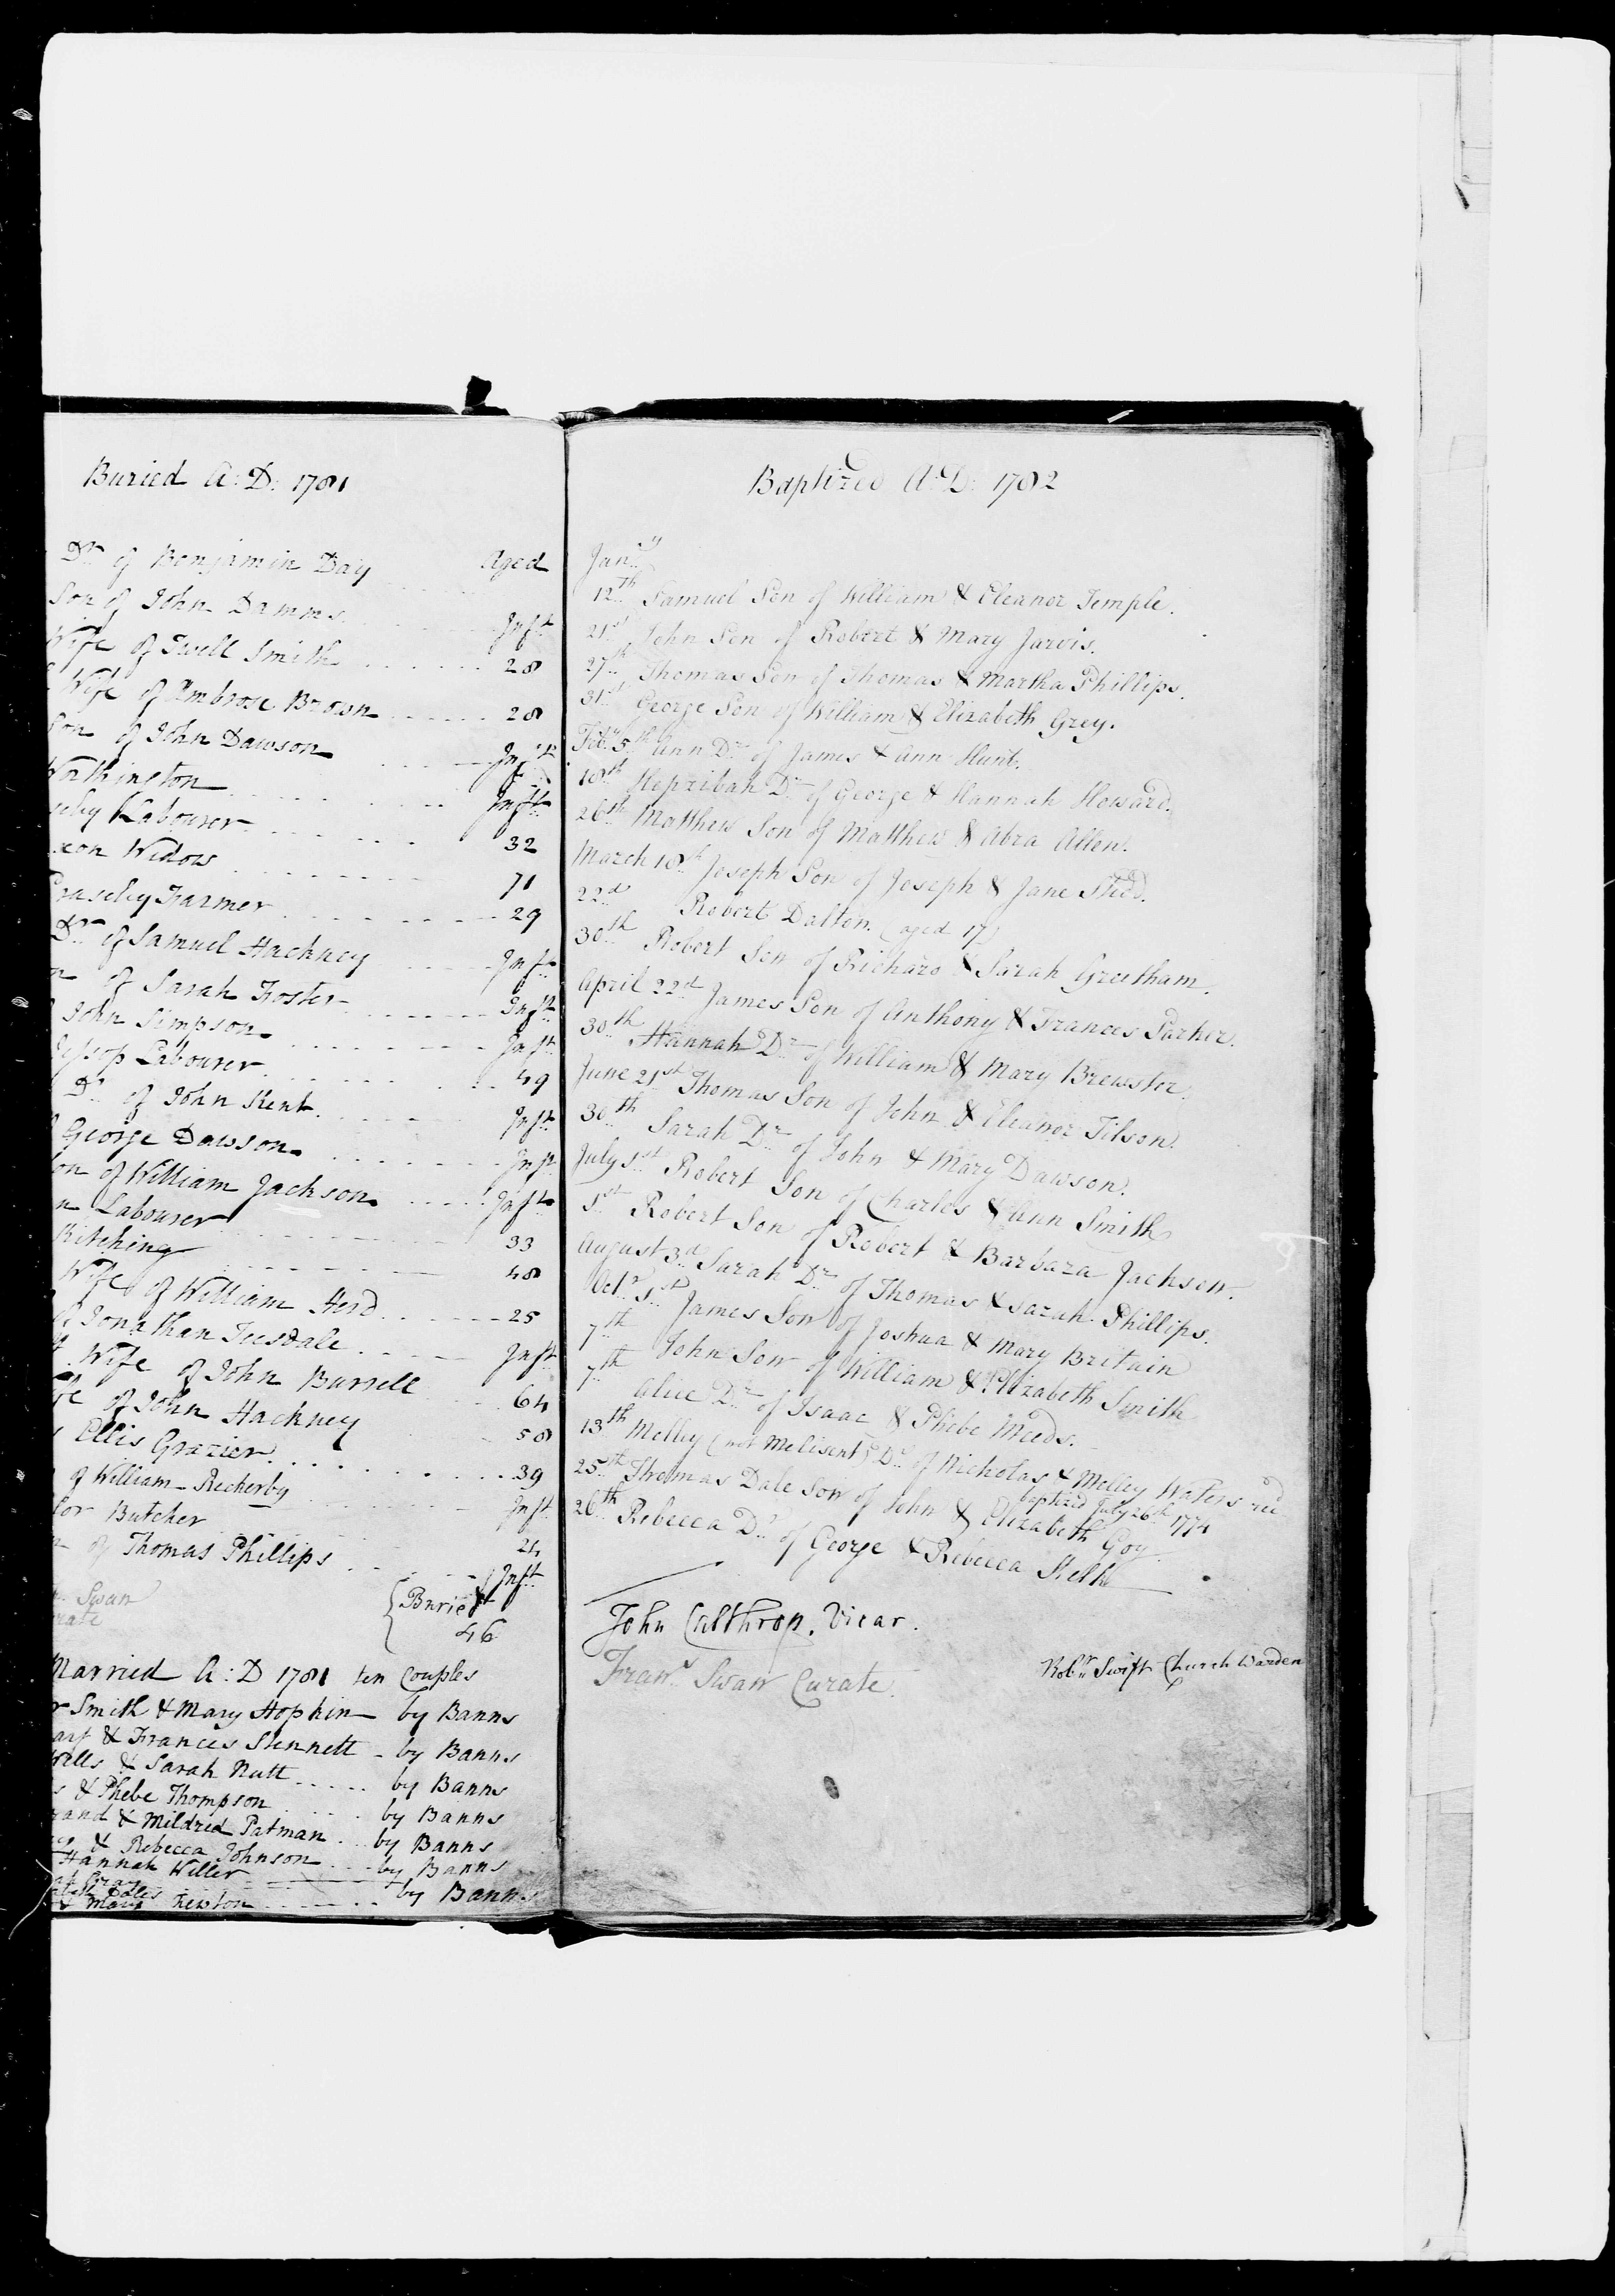 Buried A: D: 1781
Aged
Dr. of Benjamin Day
Son of John Damms Inft.
Wife of Twell Smith 28
Wife of Ambrose Brown 28
Son of John Dawson Inft.
Worthington Inft.
Labourer 32
xon Widow 71
Farmer 29
Dr. of Samuel Hackney Inft.
of Sarah Foster Inft.
John Simpson Inft.
Labourer 49
Dr. of John Kent Inft.
George Dawson Inft.
Son of William Jackson Inft.
Labourer 33
Kitching 48
Wife of William Herd 25
Jonathan Teesdale Inft.
Wife of John Burrell 64
of John Hackney 58
Ellis Grazier 39
of William Reckerby Inft.
lor Butcher 24
of Thomas Phillips Inft.
Swan
rate
Buried
46
Married A: D 1781 ten Couples
Smith & Mary Hopkin by Banns
& Frances Stennett - by Banns
Wells & Sarah Nutt by Banns
& Phebe Thompson by Banns
and & Mildred Patman by Banns
& Rebecca Johnson by Banns
Hannah Weller by Banns
Gray
Coles
& Mary Newton
Baptized A: D: 1782
Jany.
12th Samuel Son of William & Eleanor Temple.
21st John Son of Robert & Mary Jarvis.
27th Thomas Son of Thomas & Martha Phillips.
31st George Son of William & Elizabeth Grey.
Feb. 5th Ann Dr. of James & Ann Hunt.
18th Hepzibah Dr. of George & Hannah Howard.
26th Matthew Son of Matthew & Abra Allen.
March 18th Joseph Son of Joseph & Jane
22d Robert Dalton. (aged 17)
30th Robert Son of Richard & Sarah Greetham.
April 22d James Son of Anthony & Frances Parker.
30th Hannah Dr. of William & Mary Brewster.
June 21st Thomas Son of John & Eleanor Tilson.
30th Sarah Dr. of John & Mary Dawson.
July 1st Robert Son of Charles & Ann Smith
1st Robert Son of Robert & Barbara Jackson.
August 3d Sarah Dr. of Thomas & Sarah Phillips.
Octr. 1st James Son of Joshua & Mary Britain
7th John Son of William & Elizabeth Smith
7th Alice Dr. of Isaac & Phebe Meeds.
13th Melley (not Melisent) Dr. of Nicholas & Melley Waters
baptized July 26th 1774
25th Thomas Dale Son of John & Elizabeth Goy.
26th Rebecca Dr. of George & Rebecca
John Calthrop. Vicar.
Robt. Swift Church Warden
Frans. Swan Curate.